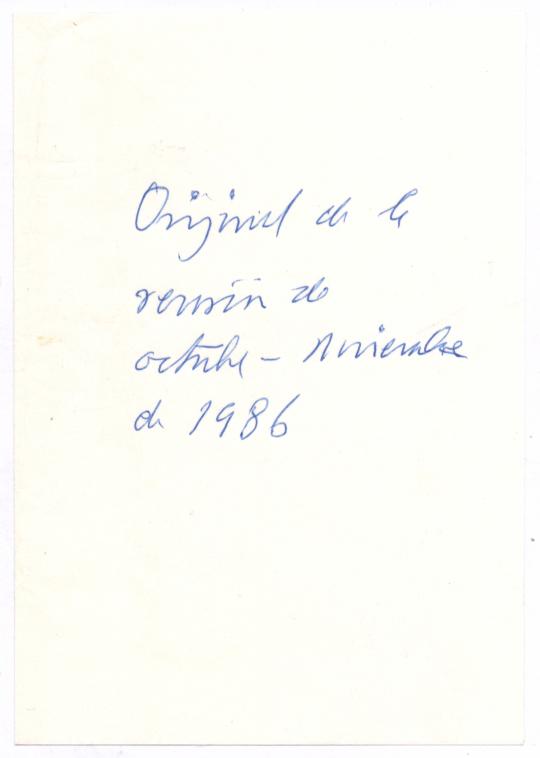 Original de la
versión de
octubre - Noviembre
de 1986